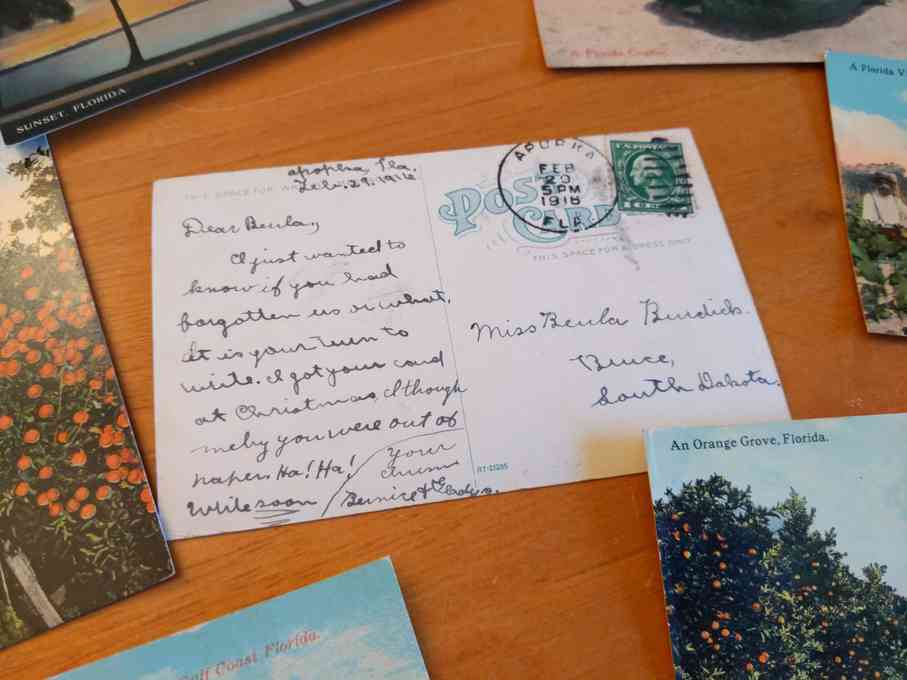 SUNSET, FLORIDA
A Florida
A Florida V
Apopka, Fla.
Feb. 29, 1916
THIS SPACE FOR
Dear Beula,
I just wanted to
know if you had
forgotten us or what.
It is your turn to
write. I got your card
at Christmas, I though
meby you were out of
paper. Ha! Ha!
Write soon
Your
chums
Bernice & Gladys.
POST
CARD
APOPKA
FEB
29
5 PM
1916
FLA.
THIS SPACE FOR ADDRESS ONLY
Miss Beula Burdick.
Bruce,
South Dakota.
An Orange Grove, Florida.
Gulf Coast, Florida.